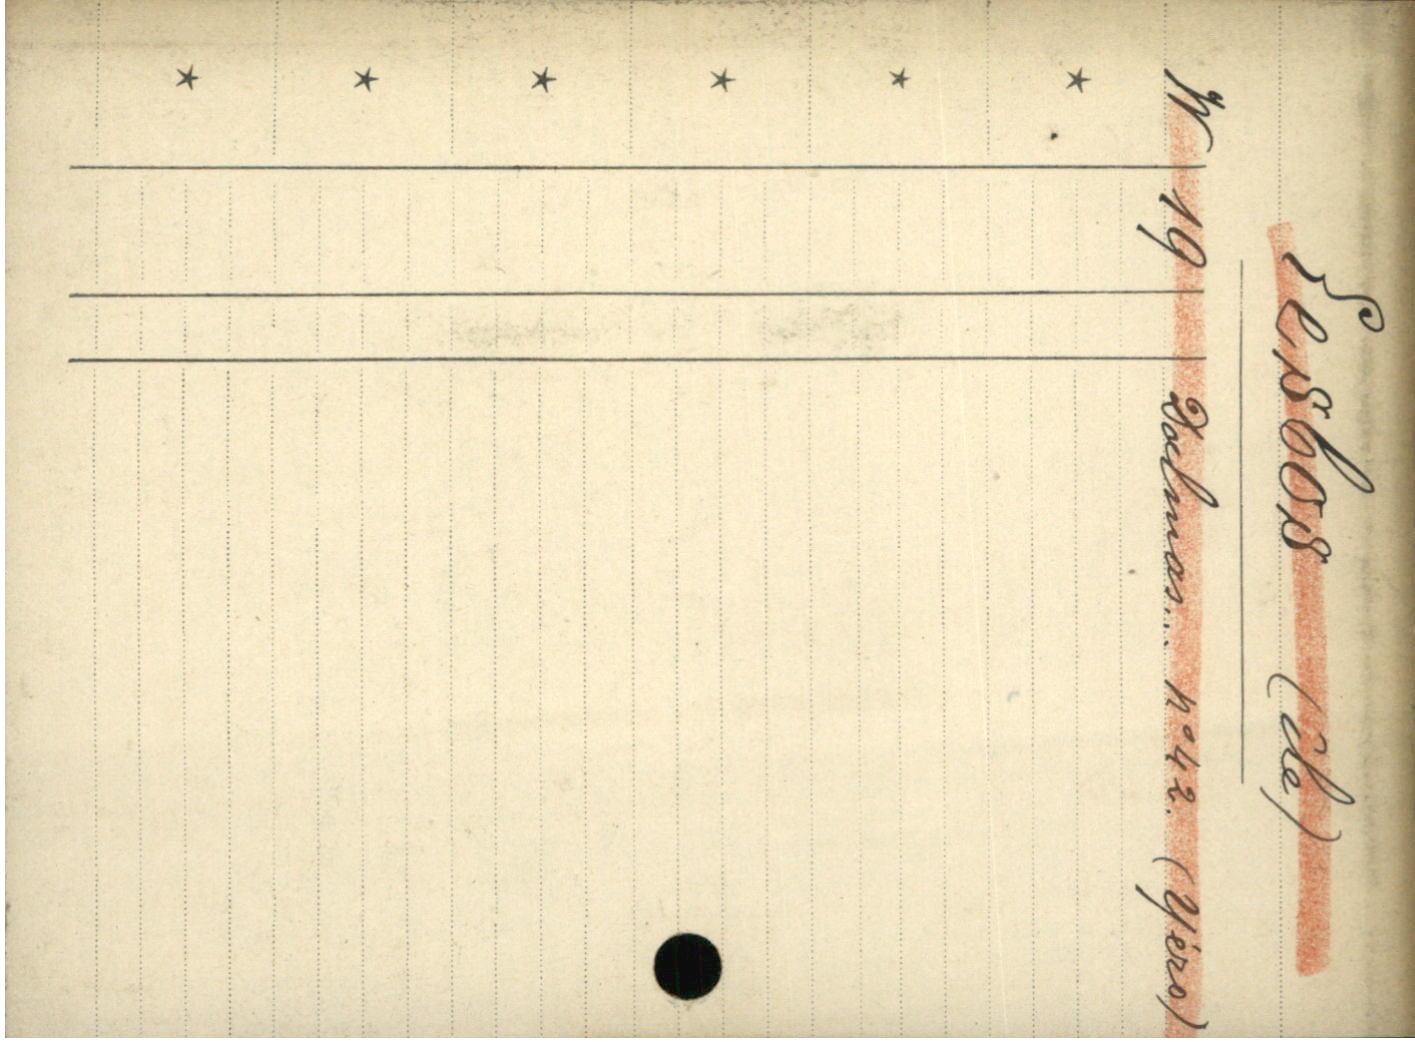 Lesbos (île)
W 19 Dalmas... n° 42. (Yéro)